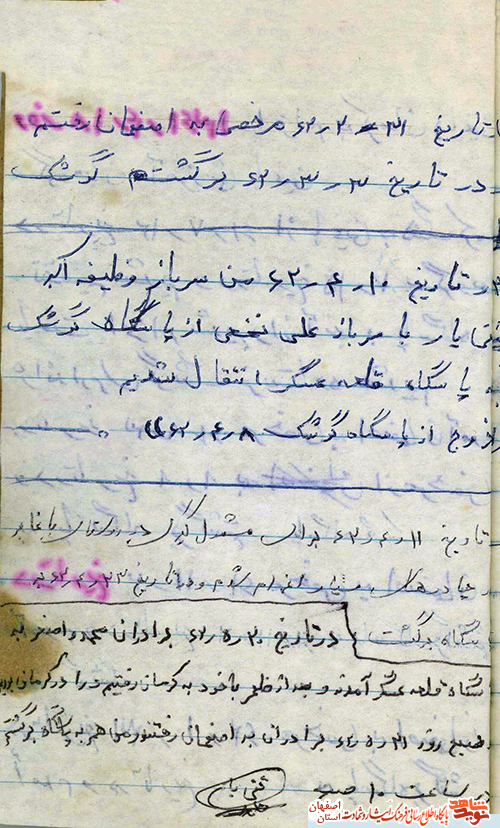 تاریخ ۳۱-۲ر۶۲ مرخصی به اصفهان رفتم
در تاریخ ۳ر۳ر۶۲ برگشتم گوشک
در تاریخ ۱۰ر۴ر۶۲ من سرباز وظیفه اکبر
تقی یار با سرباز علی نخعی از پاسگاه گوشک
به پاسگاه قلعه عسگر انتقال شدیم
خروج از پاسگاه گوشک ۸ر۴ر۶۲
تاریخ ۱۱ر۴ر۶۳ برای
اعزام شدم و در تاریخ ۲۳ر۴ر۶۲ به
پاسگاه برگشت
در تاریخ ۳۰ر۵ر۶۲ برادران محمد و اصغر به
پاسگاه قلعه عسگر آمدند و بعد از ظهر با خود به کرمان رفتیم و را در کرمان بودیم
صبح روز ۳۱ر۵ر۶۲ برادران به اصفهان رفتند و من هم به پاسگاه برگشتم
ساعت ۱۰ صبح
تقی یار
شاهد
نوید
اصفهان
پایگاه اطلاع رسانی فرهنگ ایثار و شهادت استان